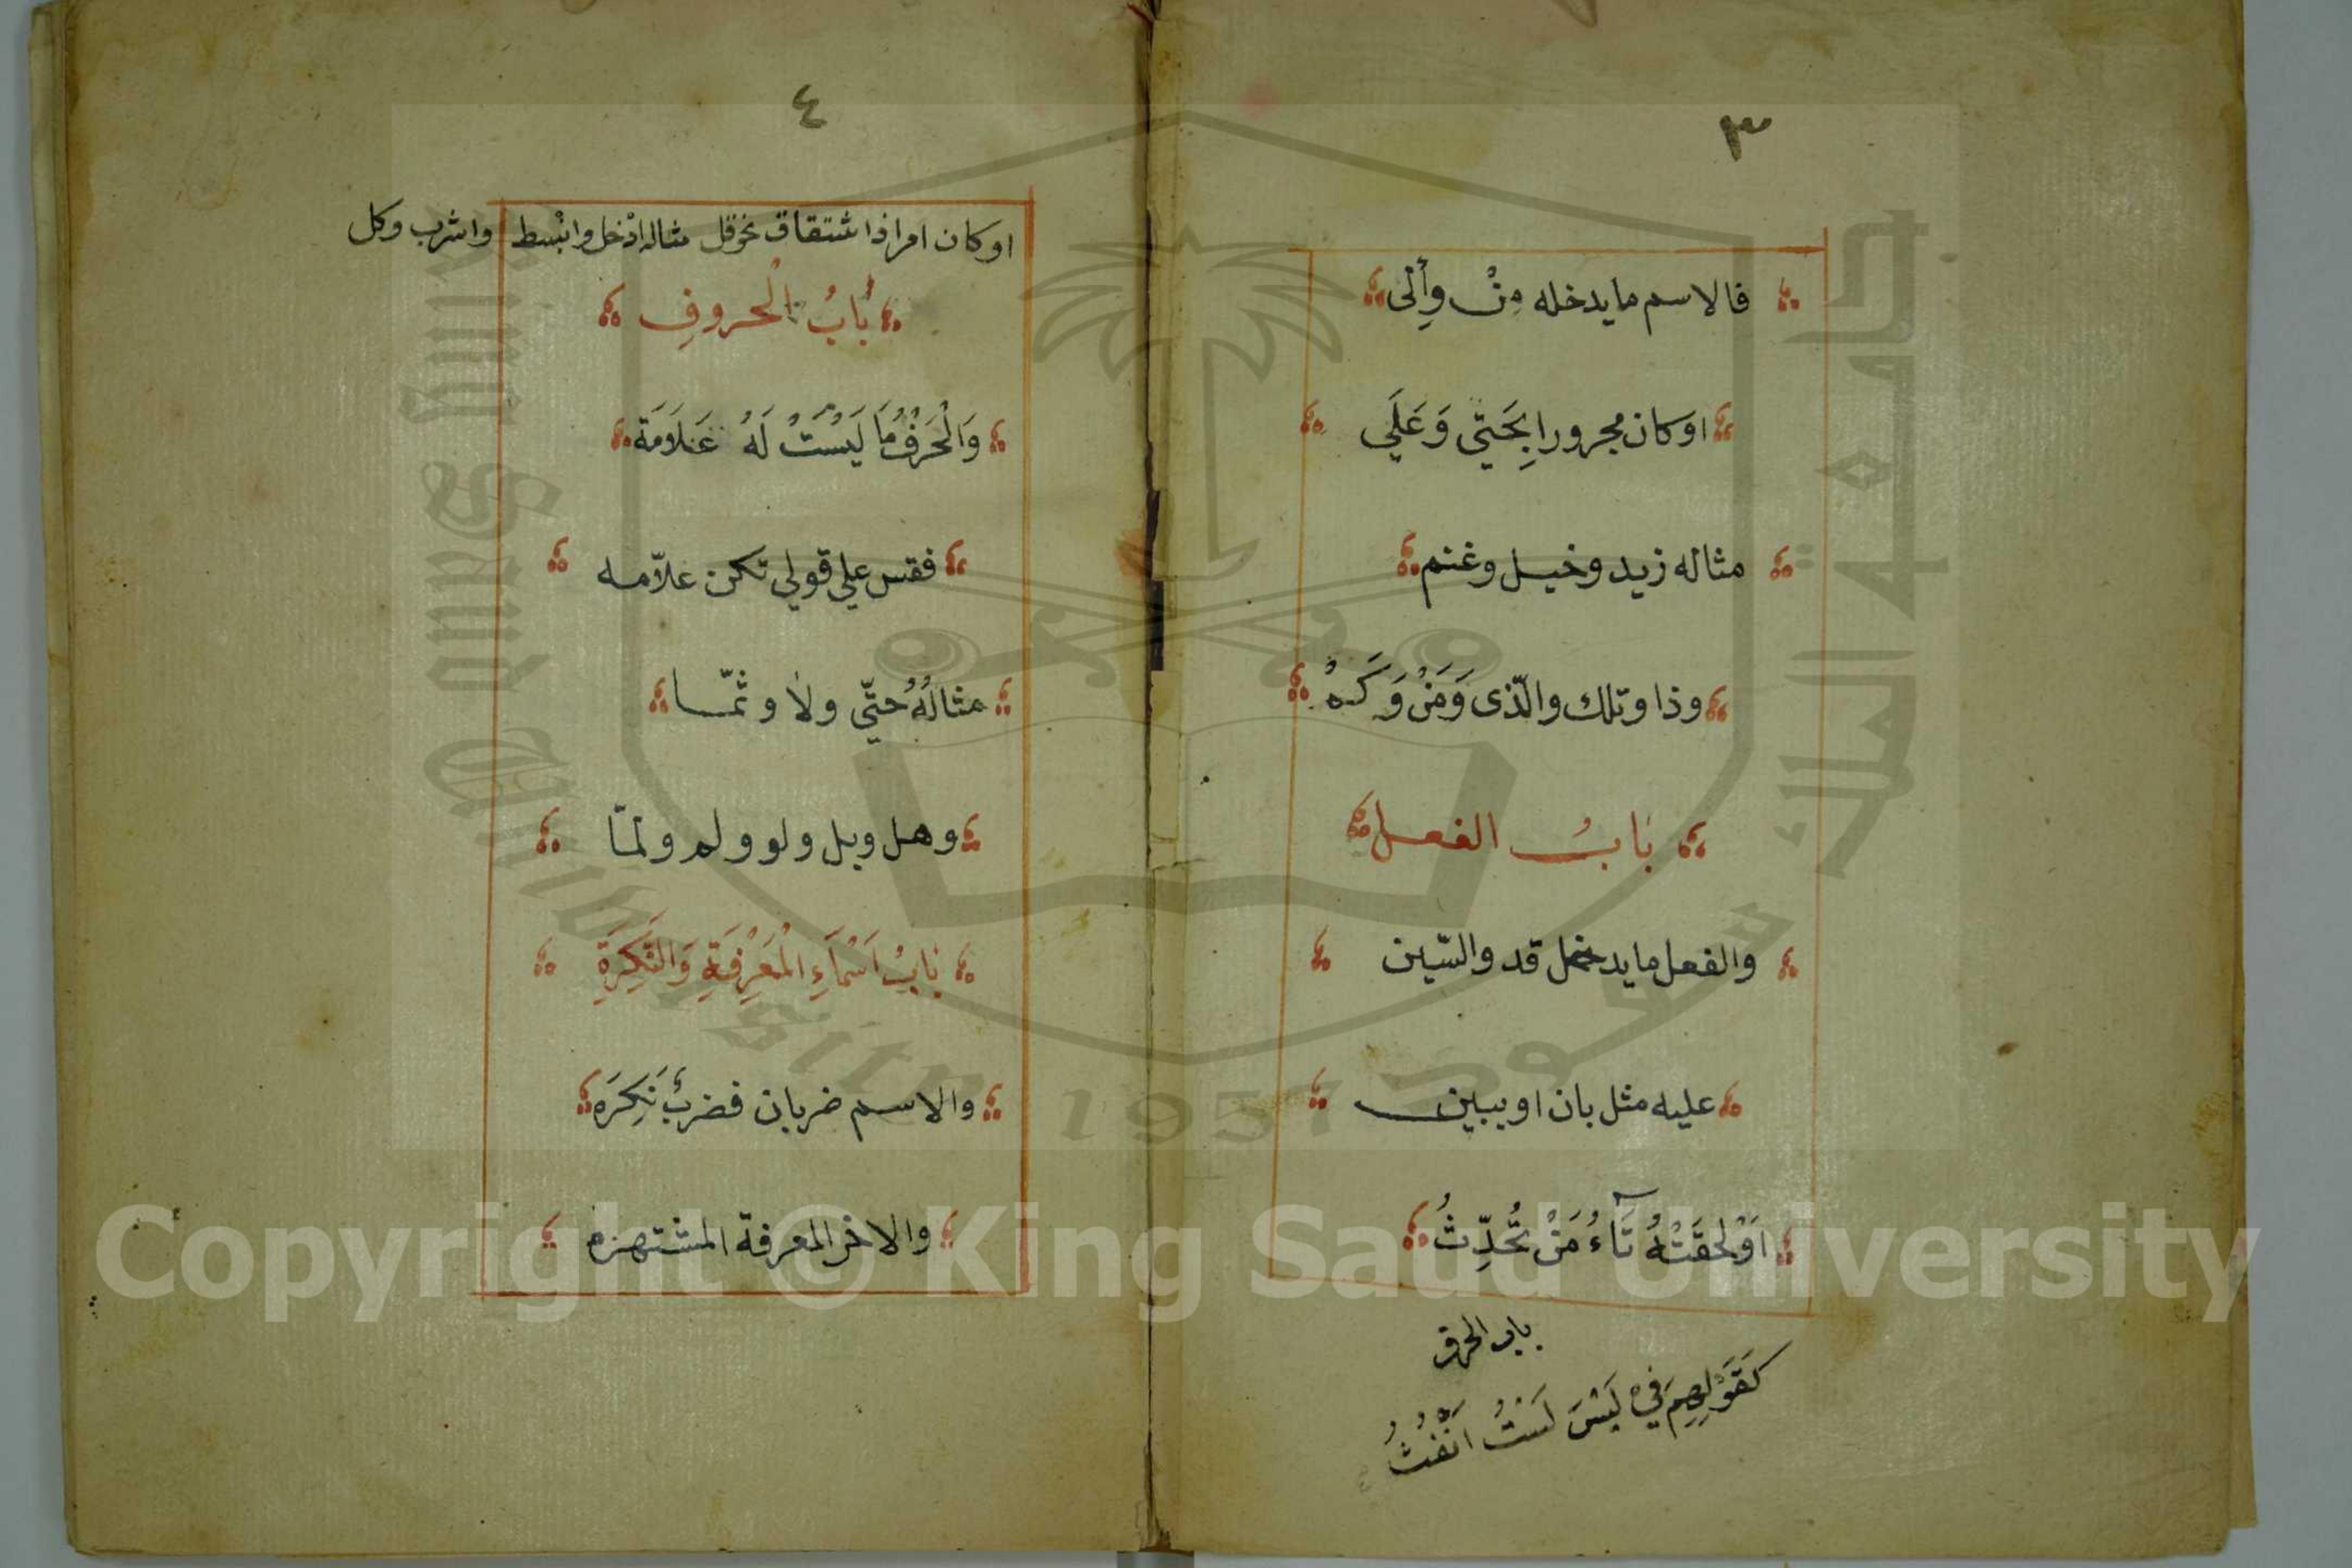 ٣
فالاسم ما يدخله مِنْ وَإِلَى
او كان مجرورا بِحَتّي وَعَلَي
مثاله زيد وخيل وغنم
وذا وتلك والّذى وَمَنْ وَكَمْ
بابُ الفعل
والفعل ما يدخل قد والسّين
عليه مثل بان او يبين
اَوْ لَحِقَتْهُ تَآءُ مَنْ تُحَدِّثُ
باب الحرف
كَقَوْلِهِمْ في لَيْسَ لَسْتُ اَنْفُثُ
٤
او كان امرا ذا اشتقاق نحو قل مثاله ادْخل وانْبسط واشرب وكل
بَابُ الْحروفِ
وَالْحَرْفُ مَا لَيْسَتْ لَهُ عَلَامَة
فقس علي قولي تكن علاّمه
مثالُهُ حتّي ولا وثمّا
وهل وبل ولو ولم ولمّا
بَابُ اَسْمَآءِ الْمَعْرِفَةِ وَالنَّكِرَةِ
والاسم ضربان فضربٌ نَكِرَه
والاخر المعرفة المشتهره
جامعة الملك سعود
King Saud University
1957
Copyright © King Saud University